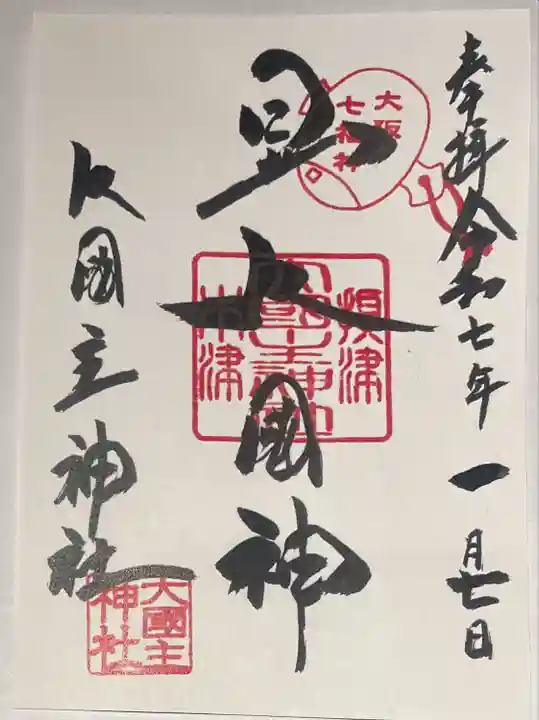 奉拝 令和七年 一月七日
大阪
七福神
日出大国神
摂津
大國主神社
木津
大国主神社
大國主
神社